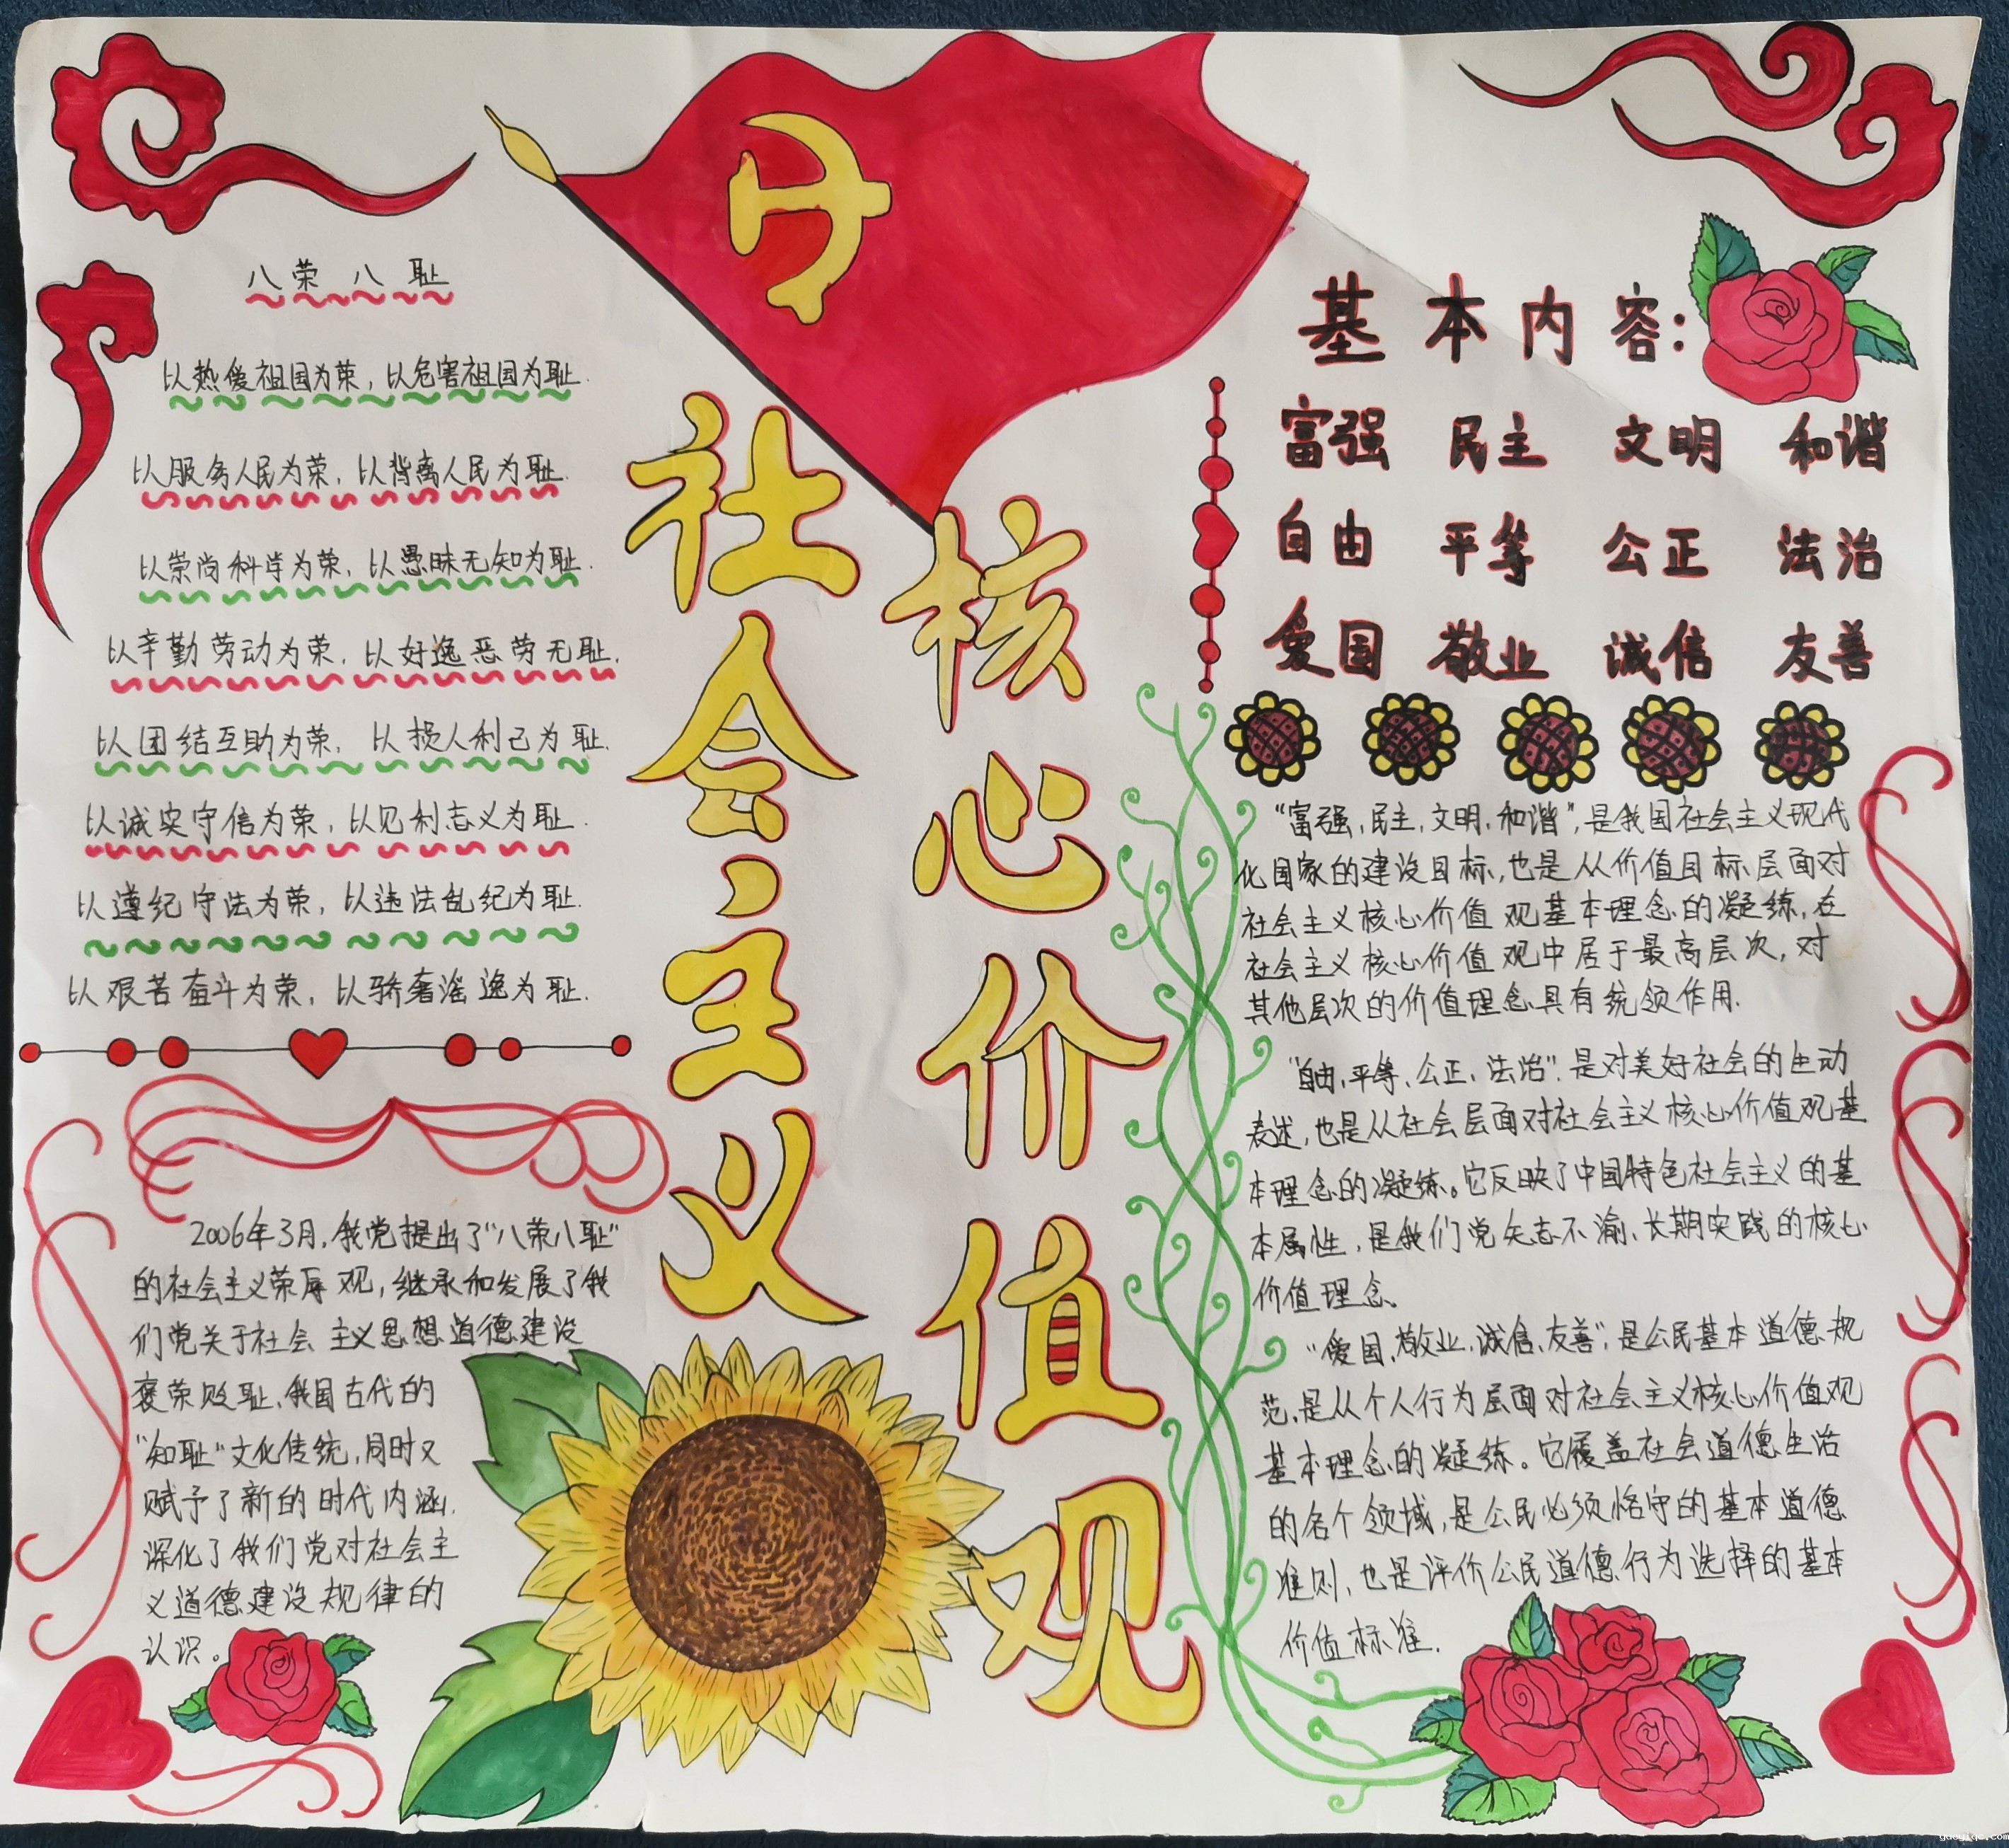 八荣八耻
以热爱祖国为荣，以危害祖国为耻.
以服务人民为荣，以背离人民为耻.
以崇尚科学为荣，以愚昧无知为耻.
以辛勤劳动为荣，以好逸恶劳无耻.
以团结互助为荣，以损人利己为耻.
以诚实守信为荣，以见利忘义为耻.
以遵纪守法为荣，以违法乱纪为耻.
以艰苦奋斗为荣，以骄奢淫逸为耻.
2006年3月，我党提出了"八荣八耻"
的社会主义荣辱观，继承和发展了我
们党关于社会主义思想道德建设
褒荣贬耻、我国古代的
"知耻"文化传统，同时又
赋予了新的时代内涵，
深化了我们党对社会主
义道德建设规律的
认识。
社会主义
核心价值观
基本内容：
富强 民主 文明 和谐
自由 平等 公正 法治
爱国 敬业 诚信 友善
"富强，民主，文明，和谐"，是我国社会主义现代
化国家的建设目标，也是从价值目标层面对
社会主义核心价值观基本理念的凝练，在
社会主义核心价值观中居于最高层次，对
其他层次的价值理念具有统领作用.
"自由、平等、公正、法治"，是对美好社会的生动
表述，也是从社会层面对社会主义核心价值观基
本理念的凝练。它反映了中国特色社会主义的基
本属性，是我们党矢志不渝、长期实践的核心
价值理念。
"爱国、敬业、诚信、友善"，是公民基本道德规
范，是从个人行为层面对社会主义核心价值观
基本理念的凝练。它覆盖社会道德生活
的各个领域，是公民必须恪守的基本道德
准则，也是评价公民道德行为选择的基本
价值标准.